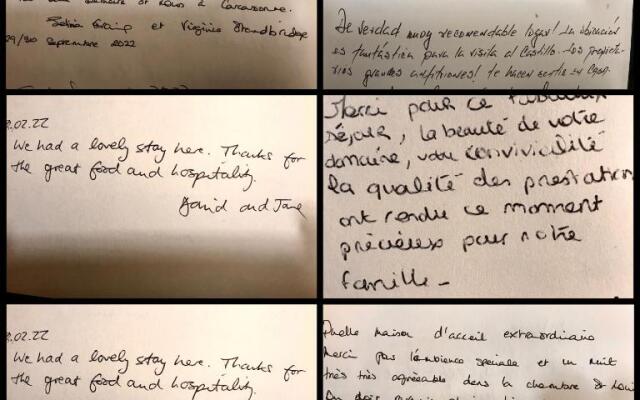 à Carcassonne.
et Virginia
29/30 Septembre 2022
De verdad muy recomendable lugar! La ubicación
es fantástica para la visita al Castillo. Los propieta-
rios grandes anfitriones! te hacen sentir en casa.
.02.22
We had a lovely stay here. Thanks for
the great food and hospitality.
David and Jane
Merci pour ce fabuleux
séjour, la beauté de votre
domaine, votre convivialité
la qualité des prestations
ont rendu ce moment
précieux pour notre
famille -
.02.22
We had a lovely stay here. Thanks for
the great food and hospitality.
Quelle maison d'accueil extraordinaire
Merci pas l'ambience speciale et un nuit
très très agréable dans la chambre St Louis